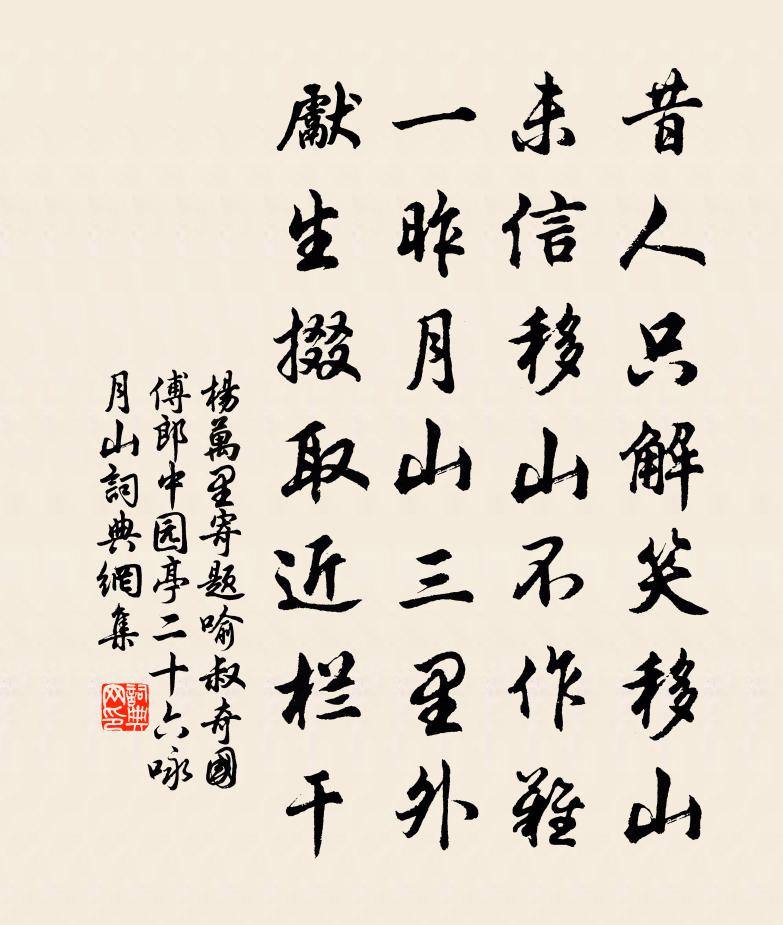 昔人只解笑移山
未信移山不作難
一昨月山三里外
獻生掇取近栏干
楊萬里寄題喻叔奇國
傅郎中园亭二十六咏
月山詞典網集
詞典网印